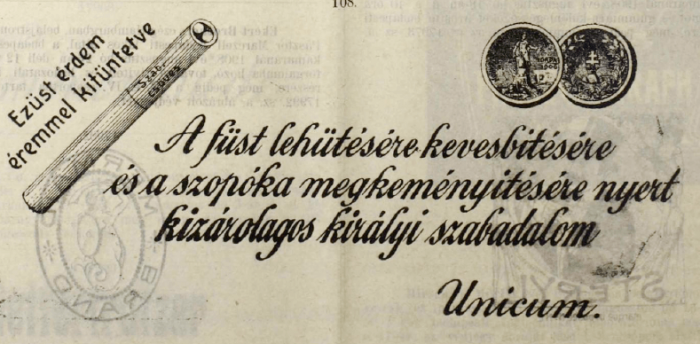 108.
Ezüst érdem
éremmel kitüntetve
Szab.
csöves
A füst lehütésére kevesbitésére
és a szopóka megkeményitésére nyert
kizárolagos királyi szabadalom
Unicum.